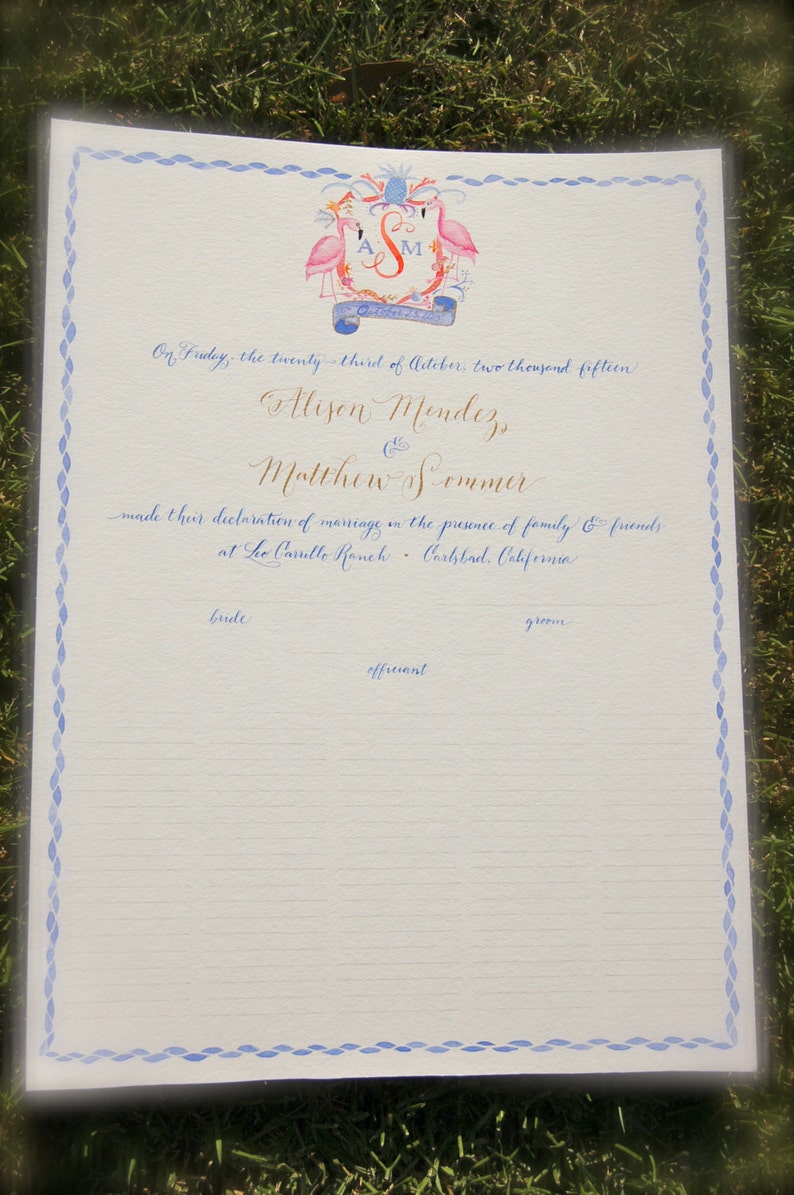 A S M
October 23, 2015
On Friday, the twenty-third of October, two thousand fifteen
Alison Mendez
&
Matthew Sommer
made their declaration of marriage in the presence of family & friends
at Leo Carrillo Ranch • Carlsbad, California
bride groom
officiant